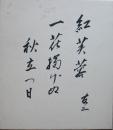 紅芙蓉
一花掲げぬ
秋立つ日